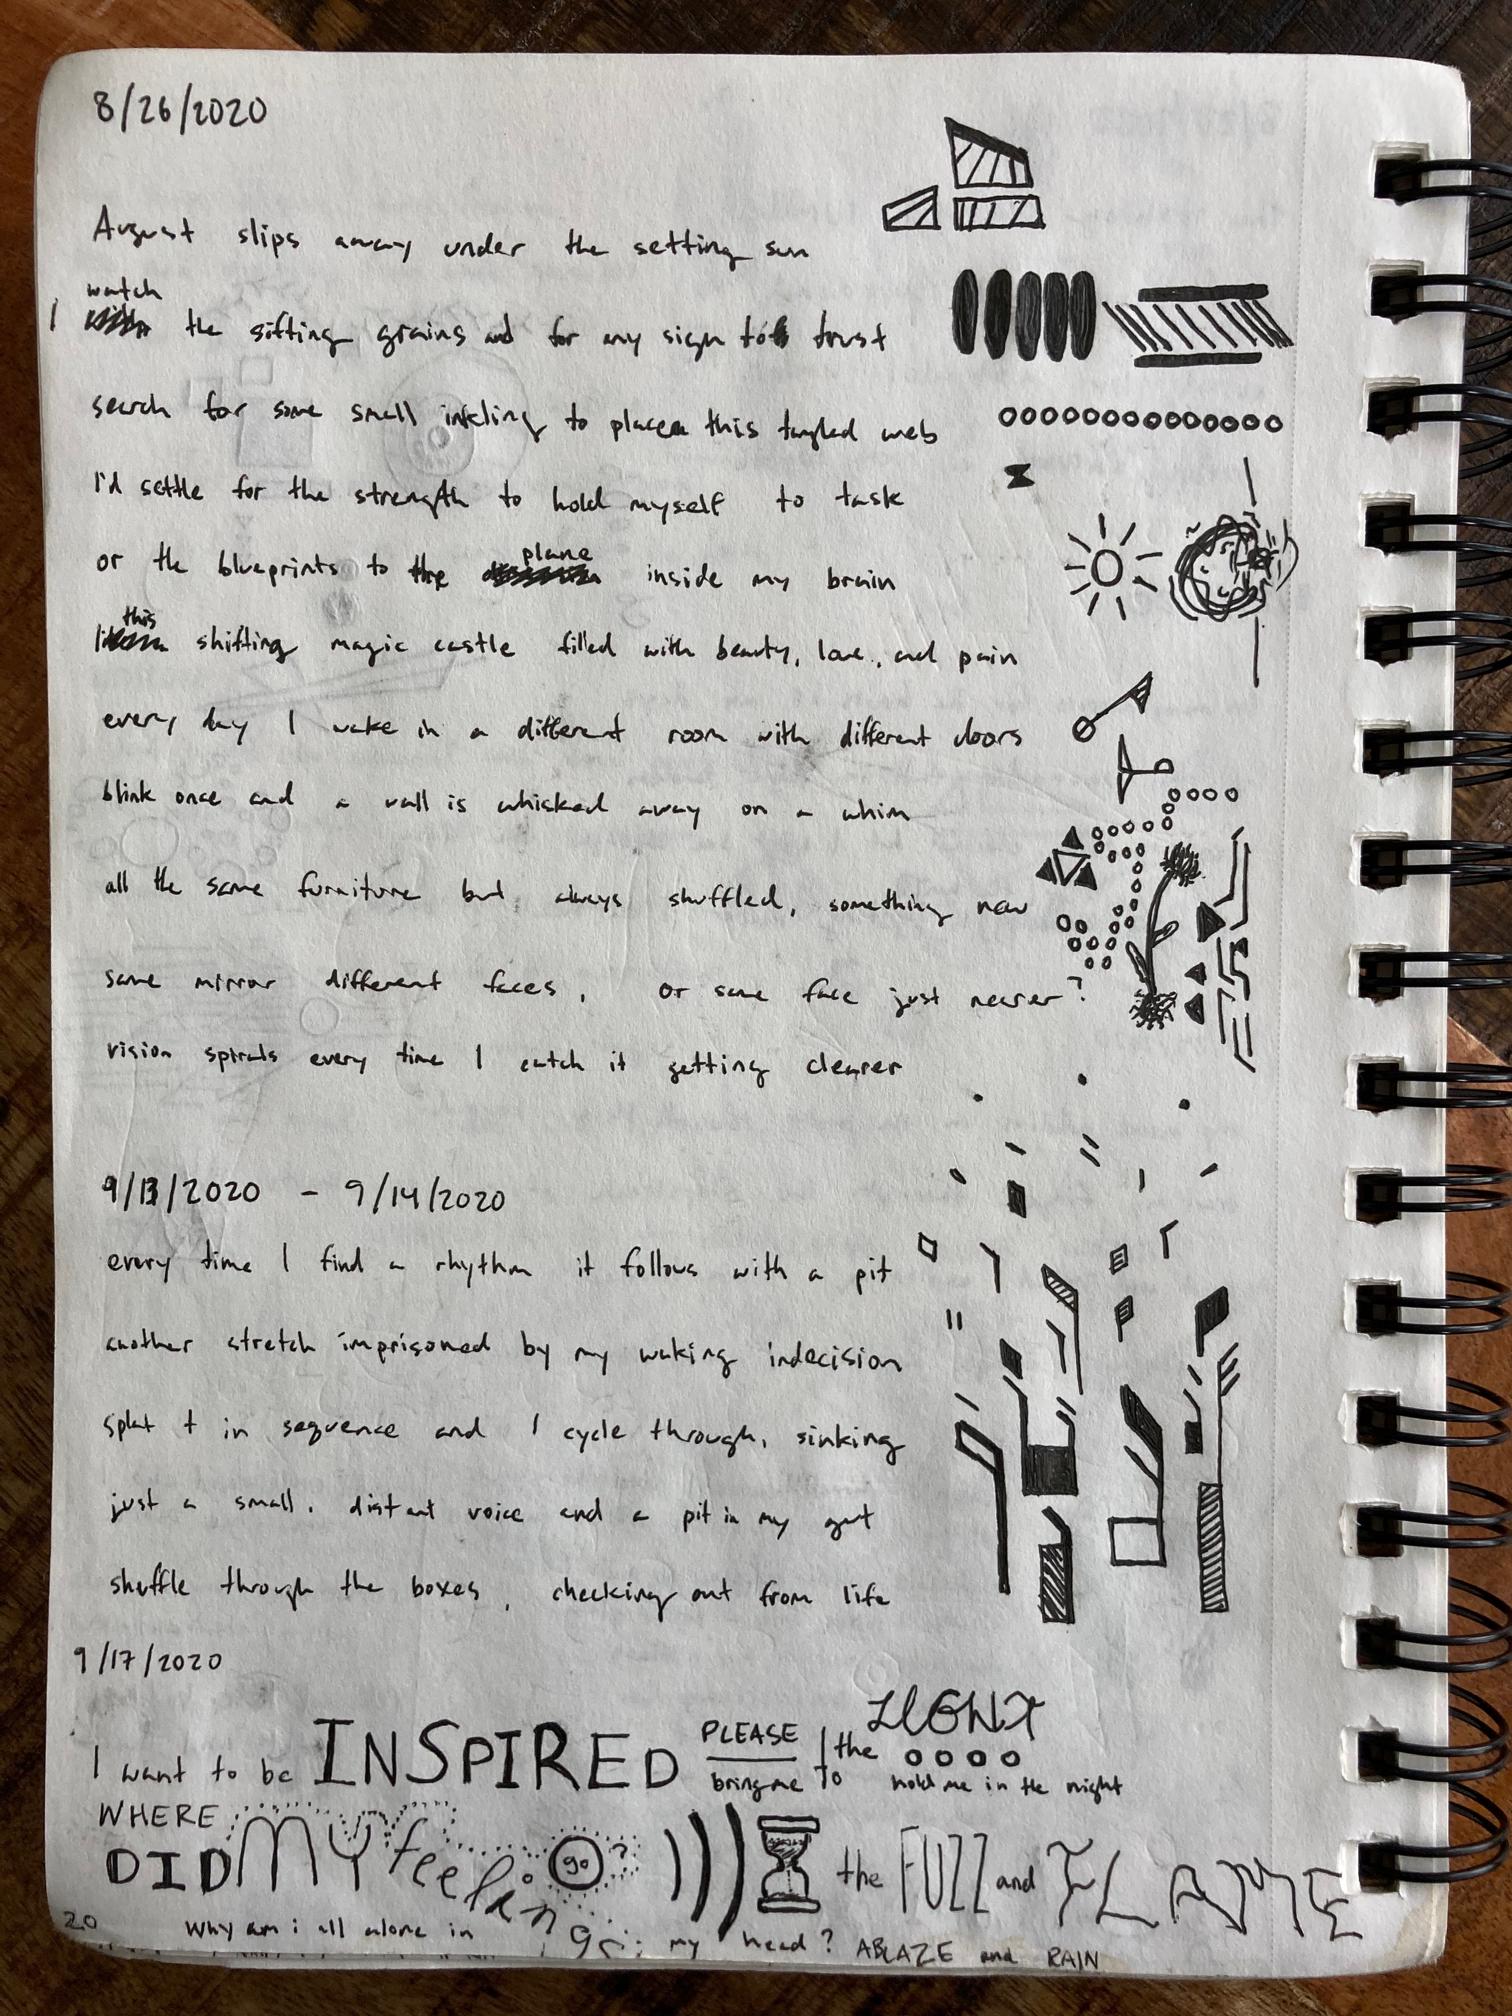 8/26/2020
August slips away under the setting sun
I watch the sifting grains and for my sign to trust
search for some small inkling to place this tangled web
I'd settle for the strength to hold myself to task
or the blueprints to the plane inside my brain
this shifting magic castle filled with beauty, love, and pain
every day I wake in a different room with different doors
blink once and a wall is whisked away on a whim
all the same furniture but always shuffled, something new
same mirror different faces, or same face just nearer?
vision spirals every time I catch it getting clearer
9/13/2020 - 9/14/2020
every time I find a rhythm it follows with a pit
another stretch imprisoned by my waking indecision
splat + in sequence and I cycle through, sinking
just a small, distant voice and a pit in my gut
shuffle through the boxes, checking out from life
9/17/2020
I want to be INSPIRED PLEASE bring me to the LIGHT hold me in the night
WHERE DID MY feelings go? the FUZZ and FLAME
20 Why am i all alone in my head? ABLAZE and RAIN